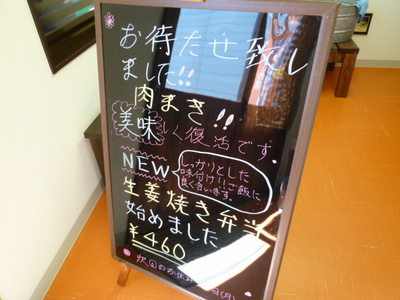 お待たせ致し
ました!!
肉まき!!
美味しく復活です。
NEW
しっかりとした
味付け!!ご飯に
良く合います。
生姜焼き弁当
始めました
¥460
次回のお休み
(月)